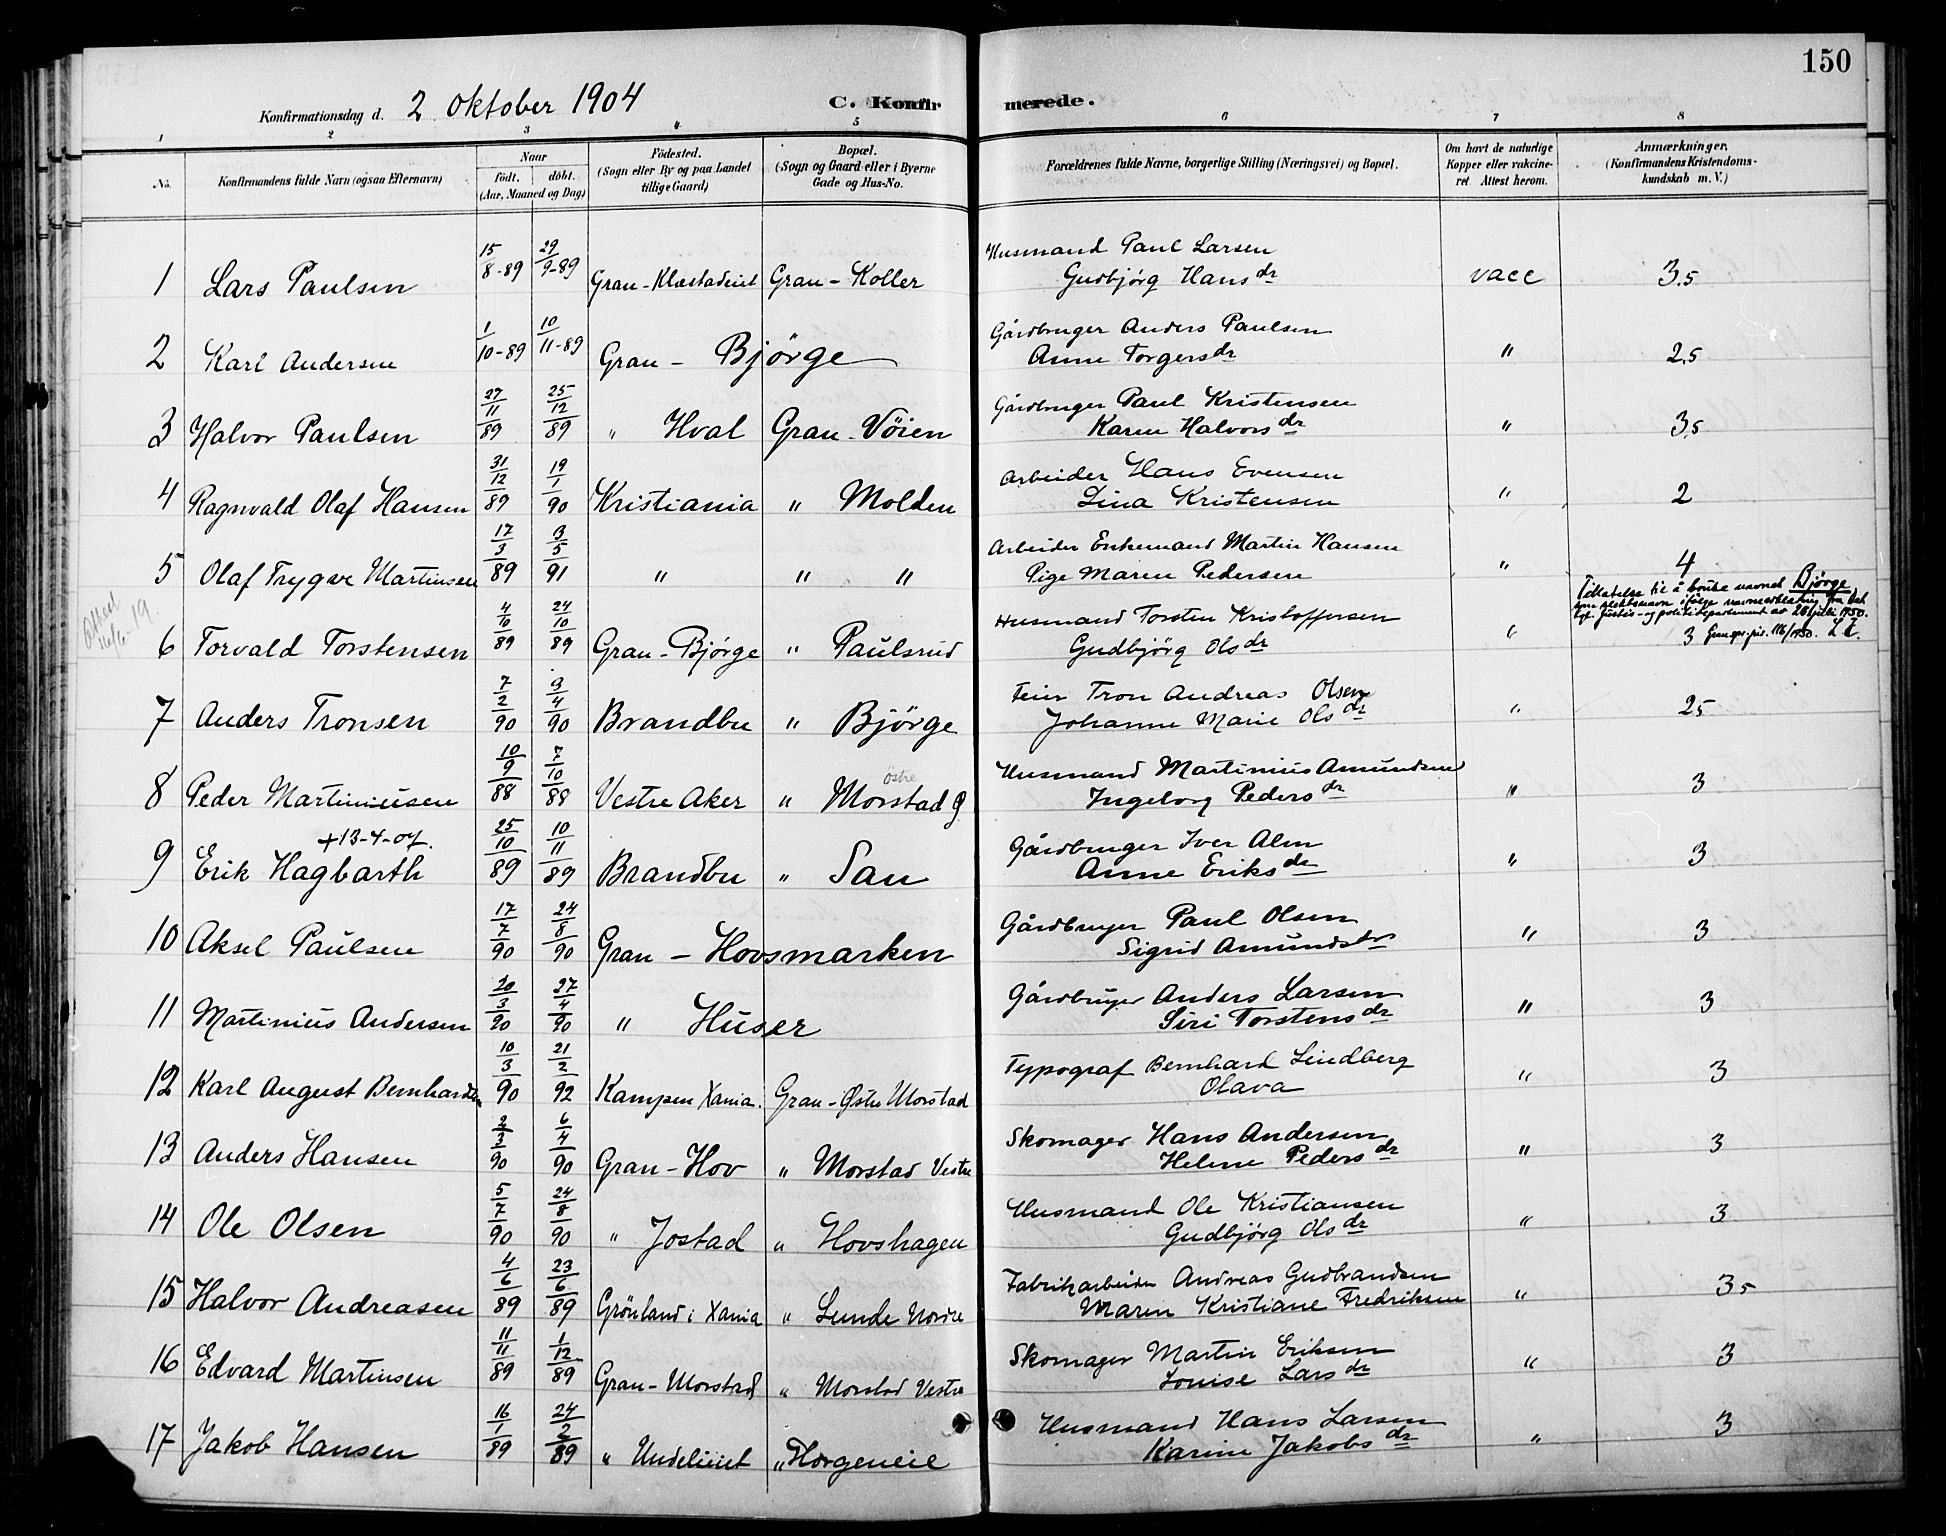 150
Konfirmationsdag d. 2 Oktober 1904 C. Konfirmerede.
1 2 3 4 5 6 7 8
No. Konfirmandens fulde Navn (ogsaa Efternavn) Naar født. døbt. (Aar, Maaned og Dag) Födested. (Sogn eller By og paa Landet tillige Gaard) Bopæl. (Sogn og Gaard eller i Byerne Gade og Hus-No. Forældrenes fulde Navne, borgerlige Stilling (Næringsvei) og Bopæl. Om havt de naturlige Kopper eller vakcineret. Attest herom. Anmærkninger. (Konfirmandens Kristendomskundskab m. V.)
1 Lars Paulsen 15/8-89 29/9-89 Gran-Klæstadeiet Gran-Koller Husmand Paul Larsen
Gudbjörg Hansdr vacc 3.5
2 Karl Andersen 1/10-89 10/11-89 Gran - Björge Gårdbruger Anders Paulsen
Anne Torgersdr " 2,5
3 Halvor Paulsen 27/11 89 25/12 89 " Hval Gran-Vöien Gårdbruger Paul Kristensen
Karen Halvorsdr " 3,5
4 Ragnvald Olaf Hansen 31/12 89 19/1 90 Kristiania " Molden Arbeider Hans Evensen
Lina Kristensen " 2
5 Olaf Trygve Martinsen 17/3 89 3/5 91 " " " Arbeider Enkemand Martin Hansen
Pige Maren Pedersen " 4
Tillatelse til å bruke navnet Björge
som slektsnavn ifølge navneendring fra det
kgl. justis- og politidepartement av 28 juli 1950.
6 Torvald Torstensen 4/10 89 24/10 89 Gran-Björge " Paulsrud Husmand Torsten Kristoffersen
Gudbjörg Olsdr " 3
7 Anders Tronsen 7/2 90 3/4 90 Brandbu " Björge Tron Andreas Olsen
Johanne Marie Olsdr " 25
8 Peder Martiniusen 10/9 88 7/10 88 Vestre Aker " Morstad østre Husmand Martinius Amundsen
Ingeborg Pedersdr " 3
+13-4-07.
9 Erik Hagbarth 25/10 89 10/11 89 Brandbu " San Gårdbruger Iver Alm
Anne Eriksdr " 3
10 Aksel Paulsen 17/7 90 24/8 90 Gran - Hovsmarken Gårdbruger Paul Olsen
Sigrid Amundsdr " 3
11 Martinius Andersen 20/3 90 27/4 90 " Huser Gårdbruger Anders Larsen
Siri Torstensdr " 3
12 Karl August Bernhardsen 10/3 90 21/2 92 Kampen Xania. Gran-Østre Morstad Typograf Bernhard Lindberg
Olava " 3
13 Anders Hansen 2/3 90 6/4 90 Gran-Hov " Morstad Vestre Skomager Hans Andersen
Helene Pedersdr " 3
14 Ole Olsen 5/7 90 24/8 90 " Jostad " Hovshagen Husmand Ole Kristiansen
Gudbjörg Olsdr " 3
15 Halvor Andreasen 4/6 89 23/6 89 Grönland i Xania " Lunde Nordre Fabrikarbeider Andreas Gudbrandsen
Maren Kristiane Fredriksen " 35
16 Edvard Martinsen 11/11 89 1/12 89 Gran-Morstad " Morstad Vestre Skomager Martin Eriksen
Louise Larsdr " 3
17 Jakob Hansen 16/1 89 24/2 89 " Undelieiet " Horgeneie Husmand Hans Larsen
Karine Jakobsdr " 3